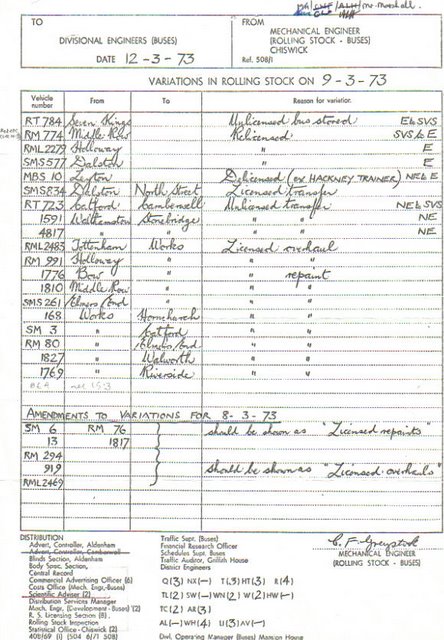 Mr. Marshall.
TO
DIVISIONAL ENGINEERS (BUSES)
DATE 12-3-73
FROM
MECHANICAL ENGINEER
(ROLLING STOCK - BUSES)
CHISWICK
Ref. 508/1
VARIATIONS IN ROLLING STOCK ON 9-3-73
Vehicle number From To Reason for variation
RT 784 Seven Kings Unlicensed bus stored E to SVS
RM 774 Middle Row Relicensed SVS to E
RML 2279 Holloway " E
SMS 577 Dalston " E
MBS 10 Leyton Delicensed (ex HACKNEY TRAINER) NE to E
SMS 834 Dalston North Street Licensed transfer
RT 723 Catford Camberwell Unlicensed transfer NE to SVS
1591 Walthamstow Stonebridge " " NE
4817 " " " " NE
RML 2483 Tottenham Works Licensed overhaul
RM 991 Holloway " " "
1776 Bow " " repaint
1810 Middle Row " " "
SMS 261 Elmers End " " "
168 Works Hornchurch " "
SM 3 " Catford " "
RM 80 " Elmers End " "
1827 " Walworth " "
1769 " Riverside " "
AMENDMENTS TO VARIATIONS FOR 8-3-73
SM 6 RM 76 should be shown as "Licensed repaints"
13 1817
RM 294
919 should be shown as "Licensed overhauls"
RML 2469
DISTRIBUTION
Advert. Controller, Aldenham
Advert. Controller, Camberwell
Blinds Section, Aldenham
Body Spec. Section,
Central Record
Commercial Advertising Officer (6)
Costs Office (Mech. Eng.-Buses)
Scientific Adviser (2)
Distribution Services Manager
Mech. Engr. (Development-Buses) (2)
R. S. Licensing Section (8)
Rolling Stock Inspection
Statistical Office-Chiswick (2)
408/169 (1) (504 6/71 508)
Traffic Supt. (Buses)
Financial Research Officer
Schedules Supt. Buses
Traffic Auditor, Griffith House
District Engineers
Q(3) NX(-) T(3) HT(3) R(4)
TL(2) SW(-) WN(2) W(2) HW(-)
TC(2) AR(3)
AL(-) WH(4) U(3) AV(-)
Divl. Operating Manager (Buses) Mansion House
MECHANICAL ENGINEER
(ROLLING STOCK - BUSES)